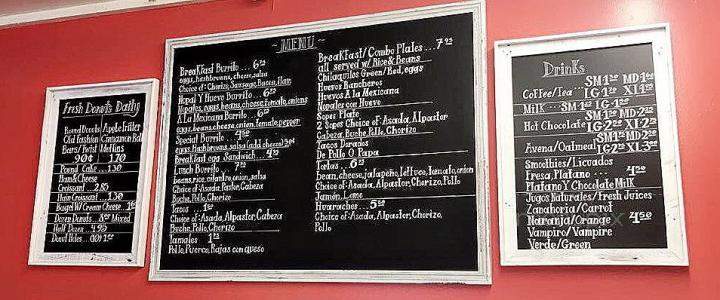 Fresh Donuts Daily
Round Donuts Apple Fritter
Old Fashion Cinnamon Roll
Bars/Twist
90¢ 1.70
Pound Cake 1.30
Ham & Cheese
Croissant 2.85
Plain Croissant 1.30
Bagel W/ Cream Cheese
Dozen Donuts Mixed
Half Dozen 4.95
Donut Holes
~MENU~
Breakfast Burrito ... 6
eggs, hashbrowns, cheese, salsa
Choice of: Chorizo, Sausage, Bacon, Ham
Nopal Y Huevo Burrito ... 6
Nopales, eggs, beans, cheese, tomato, onions
A La Mexicana Burrito ... 6
eggs, beans, cheese, onion, tomato, pepper
Special Burrito ... 4
eggs, hashbrowns, salsa (add cheese)
Breakfast egg Sandwich ... 4
Lunch Burrito ... 7
beans, rice, cilantro, onion, salsa
Choice of: Asada, Pastor, Cabeza
Buche, Pollo, Chorizo
Tacos ... 1
Choice of: Asada, Alpastor, Cabeza
Buche, Pollo, Chorizo
Tamales 1
Pollo, Puerco, Rajas con queso
Breakfast/Combo Plates ... 7
all served w/ Rice & Beans
Chilaquiles Green/Red, eggs
Huevos Rancheros
Huevos A la Mexicana
Nopales con Huevo
Super Plate
2 Super Choice of: Asada, Alpastor
Cabeza, Buche, Pollo, Chorizo
Tacos Dorados
De Pollo O Papa
Tortas ... 6
bean, cheese, jalapeño, lettuce, tomato, onion
Choice of: Asada, Alpastor, Chorizo, Pollo
Jamon, Lomo
Huaraches ... 5
Choice of: Asada, Alpastor, Chorizo,
Pollo
Drinks
SM 1 MD 1
Coffee/Tea LG 1 XL 1
Milk ... SM 1 LG 1
SM 1 MD 2
Hot Chocolate LG 2 XL 2
SM MD 2
Avena/Oatmeal LG 2 XL 3
Smoothies/Licuados
Fresa, Platano ... 4
Platano Y Chocolate Milk
Jugos Naturales/Fresh Juices
Zanahoria/Carrot
Naranja/Orange 4
Vampiro/Vampire
Verde/Green